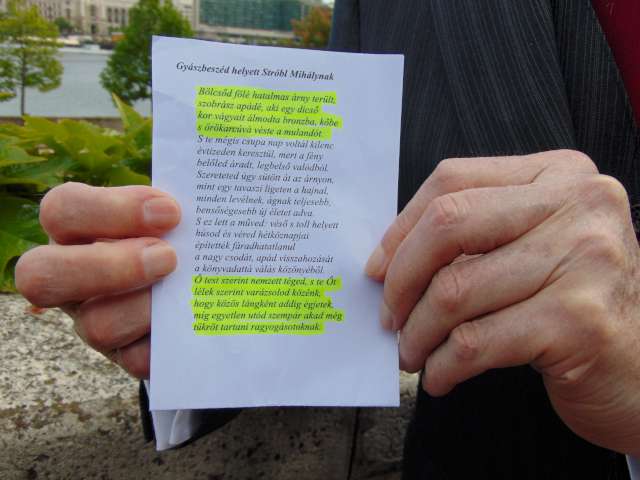 Gyászbeszéd helyett Stróbl Mihálynak
Bölcsőd fölé hatalmas árny terült,
szobrász apádé, aki egy dicső
kor vágyait álmodta bronzba, kőbe
s örökarcúvá véste a mulandót.
S te mégis csupa nap voltál kilenc
évtizeden keresztül, mert a fény
belőled áradt, legbelső valódból.
Szereteted úgy sütött át az árnyon,
mint egy tavaszi ligeten a hajnal,
minden levélnek, ágnak teljesebb,
bensőségesebb új életet adva.
S ez lett a műved: véső s toll helyett
húsod és véred hétköznapjai
építették fáradhatatlanul
a nagy csodát, apád visszahozását
a könyvadattá válás közönyéből.
Ő test szerint nemzett téged, s te Őt
lélek szerint varázsolod közénk,
hogy közös lángként addig égjetek,
míg egyetlen utód szempár akad még
tükröt tartani ragyogásotoknak.